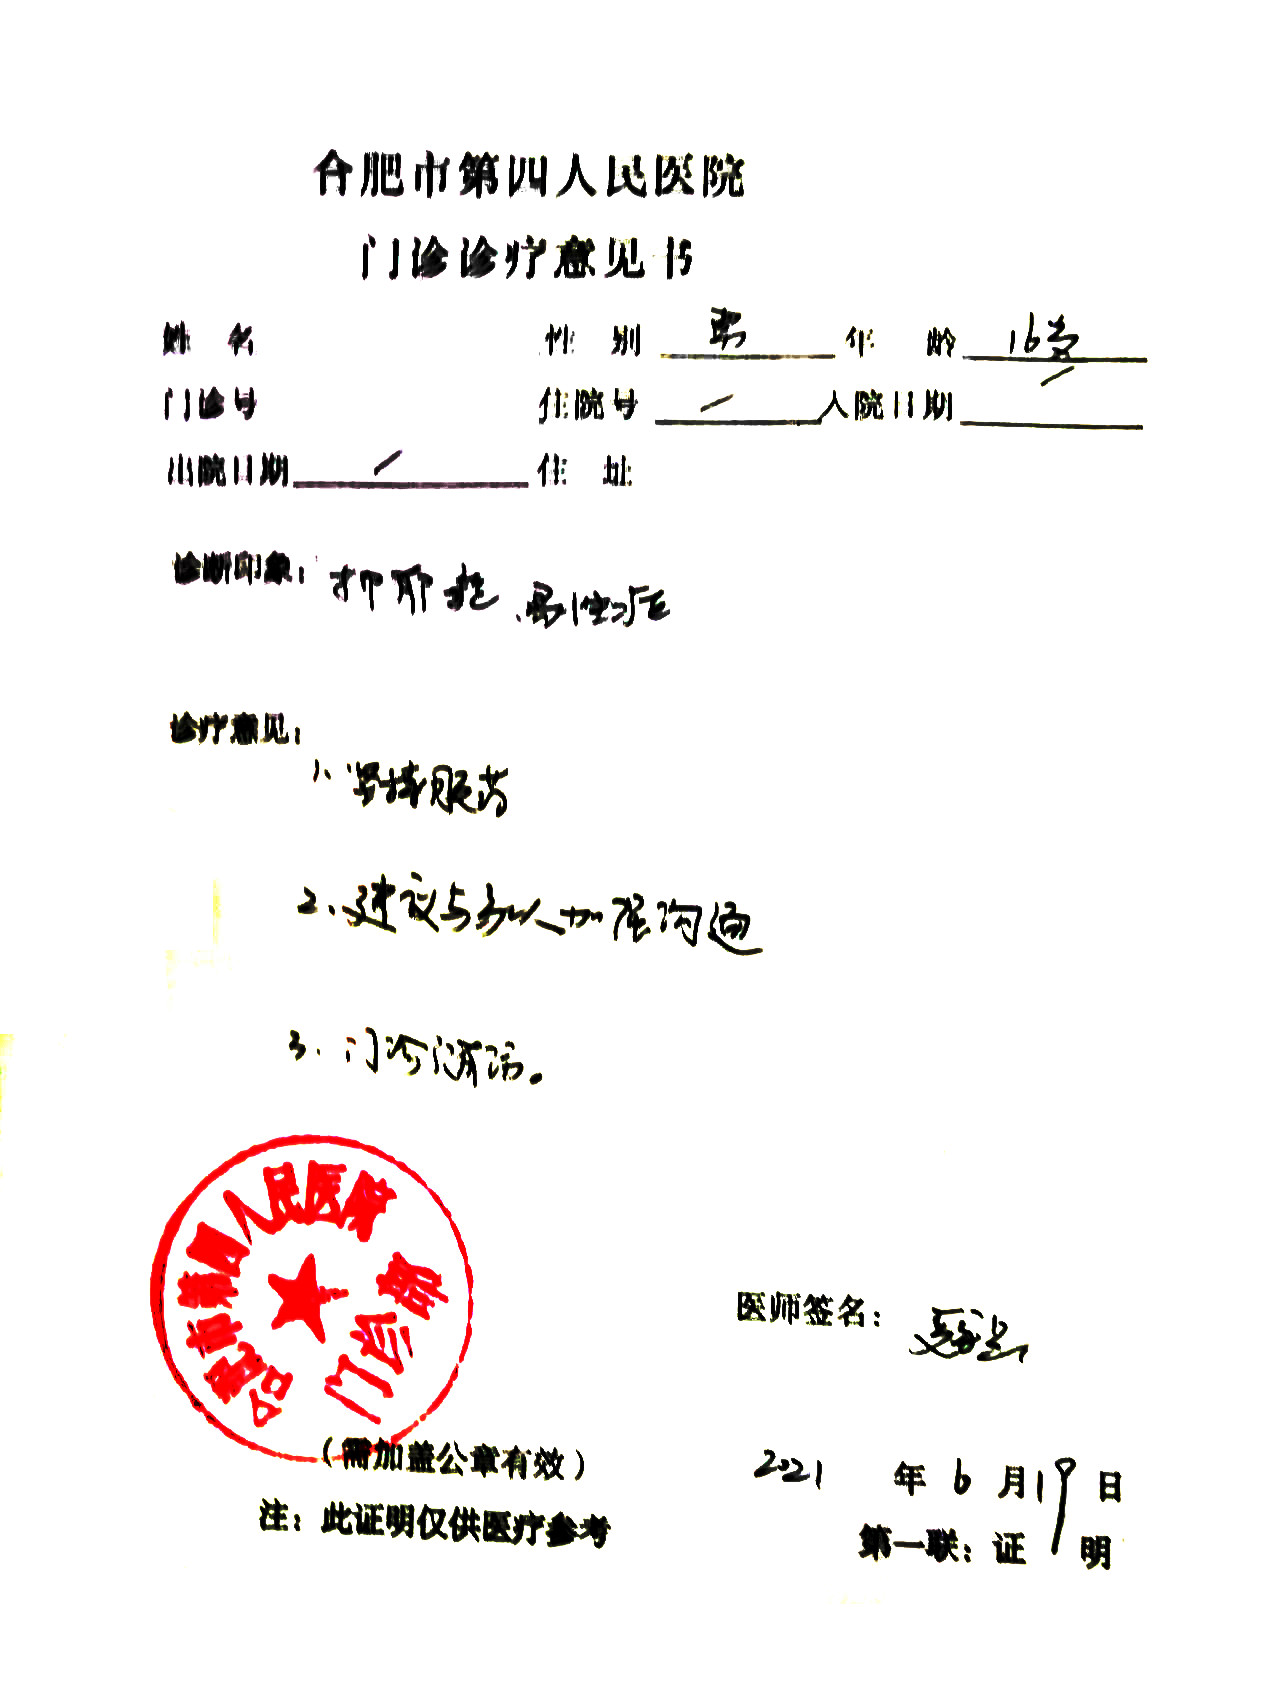 合肥市第四人民医院
门诊诊疗意见书
姓 名 性 别 男 年 龄 16岁
门诊号 住院号 / 入院日期 /
出院日期 / 住 址
诊断印象：抑郁症、
诊疗意见：
1、坚持服药
2、建议与家人加强沟通
3、门诊随访。
合肥市第四人民医院
门诊部
医师签名：
（需加盖公章有效） 2021 年 6 月 19 日
注：此证明仅供医疗参考 第一联：证 明